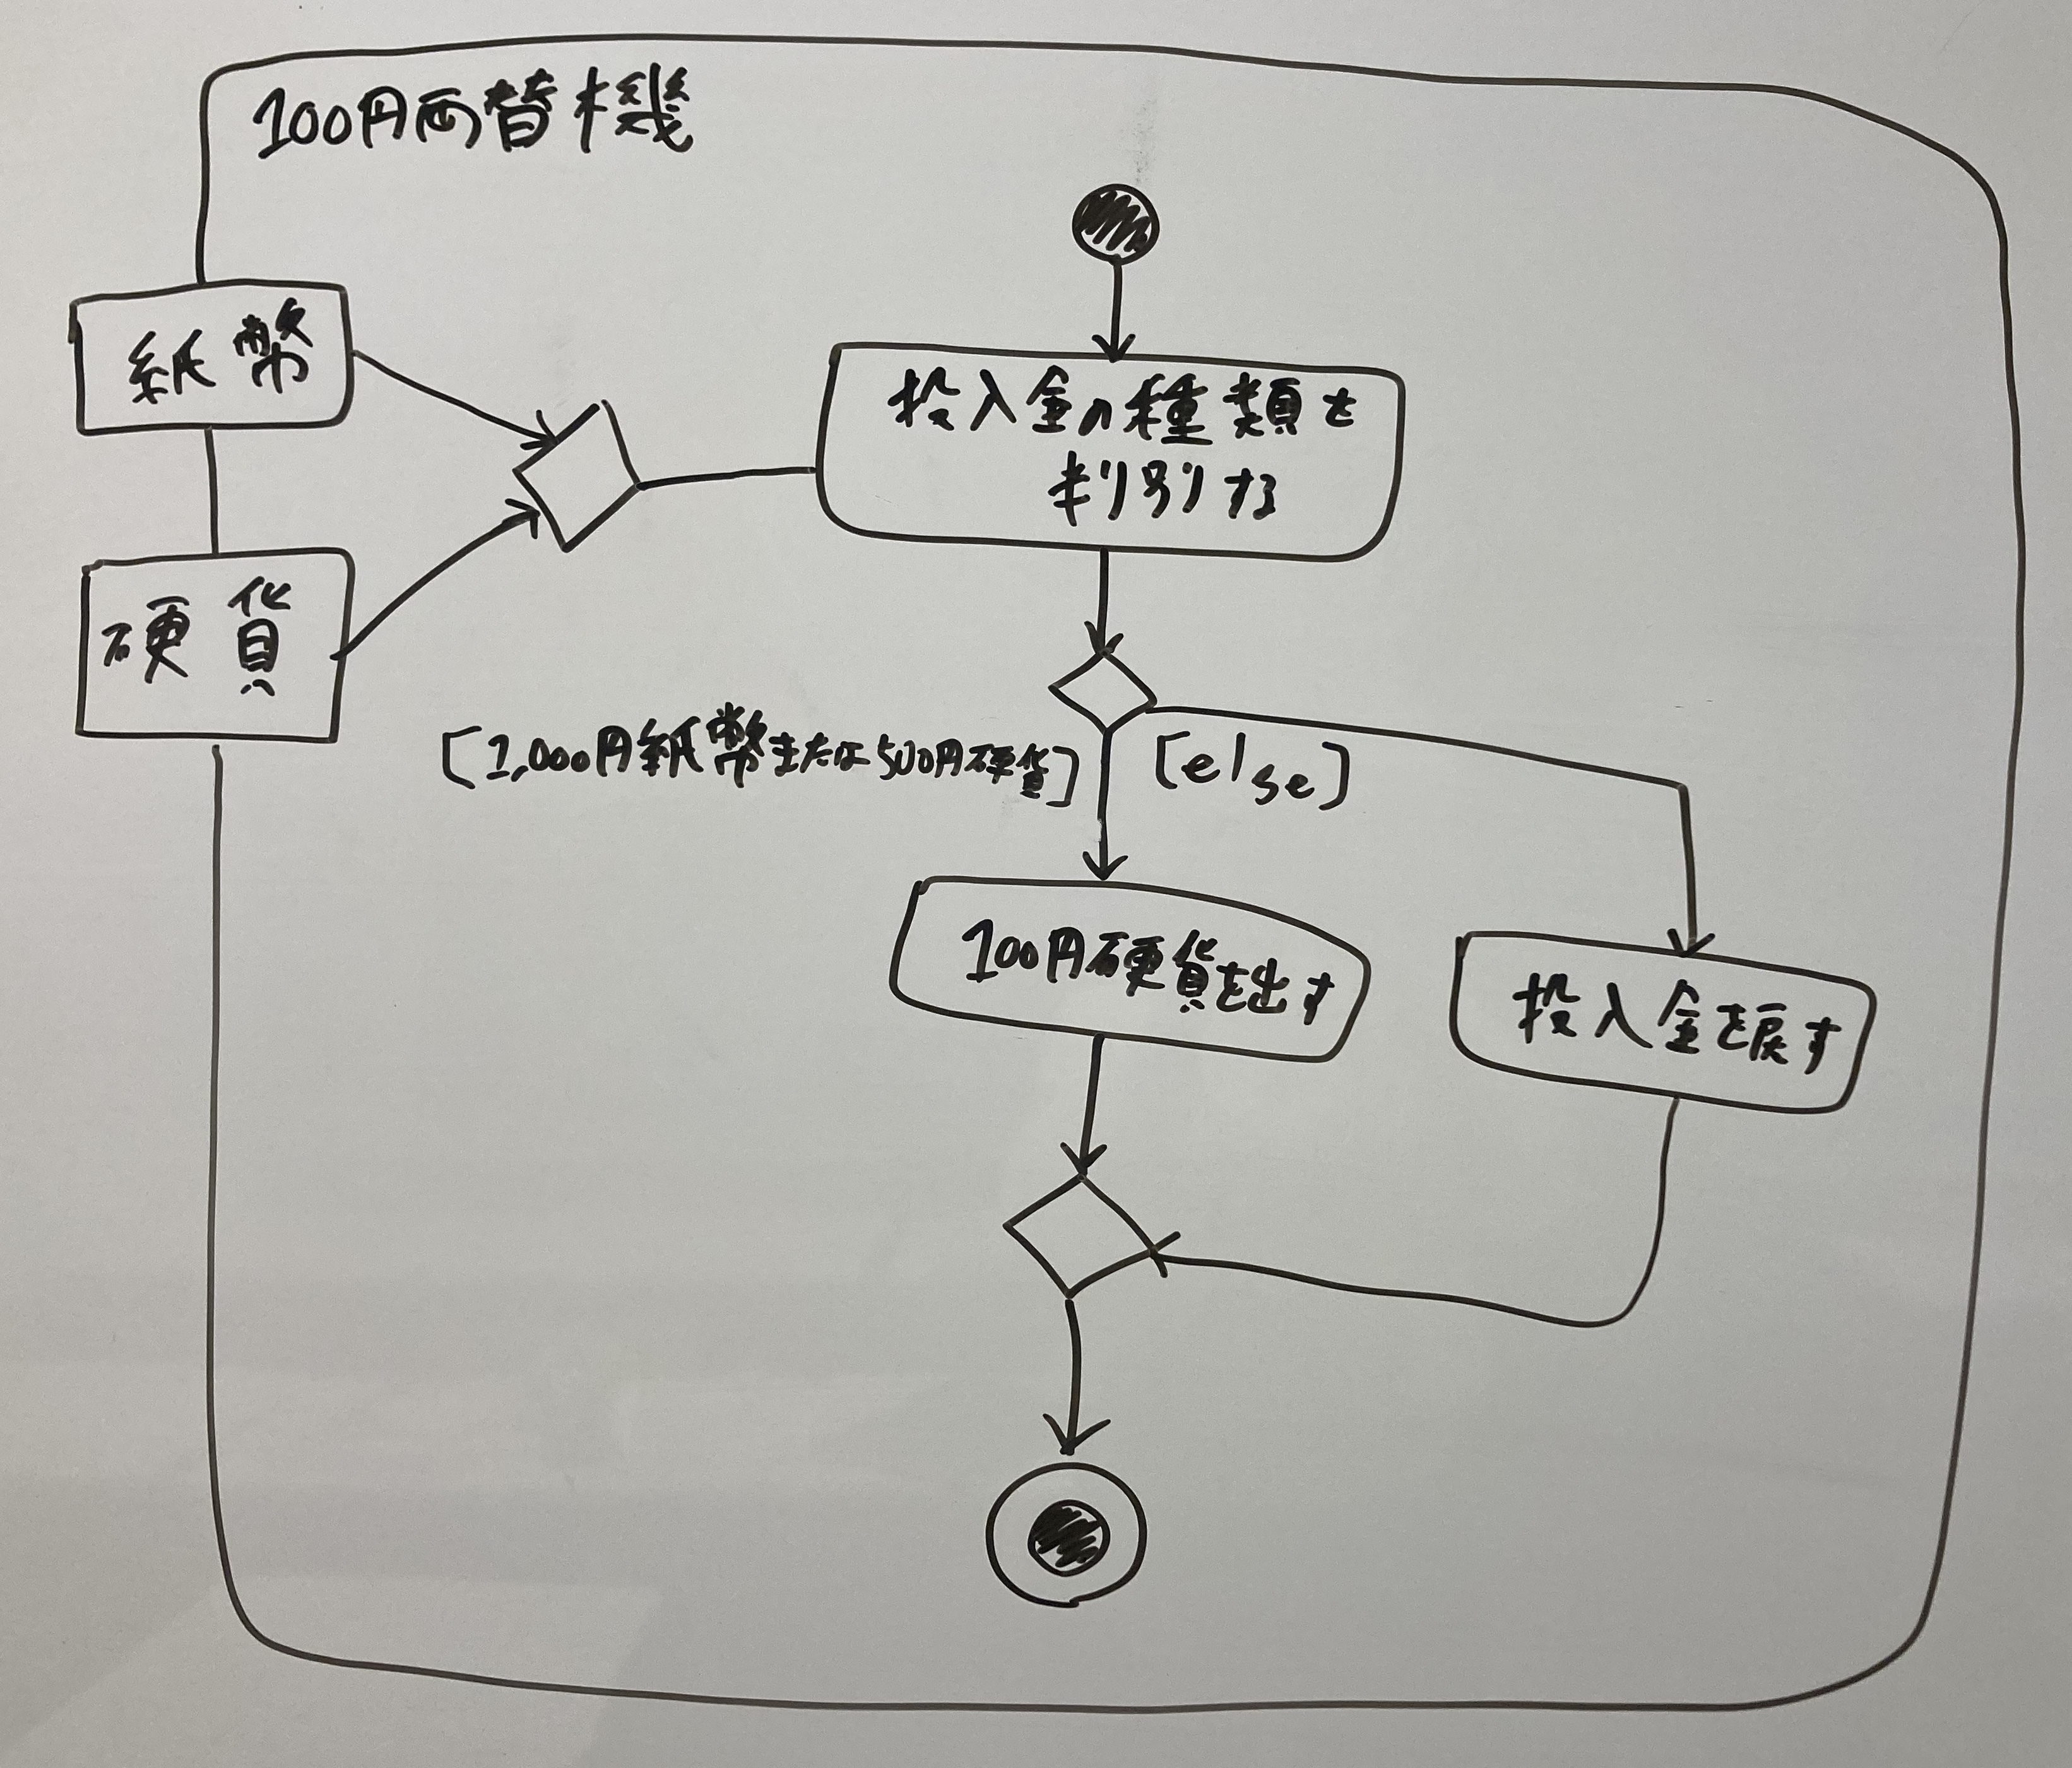 100円両替機
紙幣
硬貨
投入金の種類を
判別する
[1,000円紙幣または500円硬貨]
[else]
100円硬貨を出す
投入金を戻す